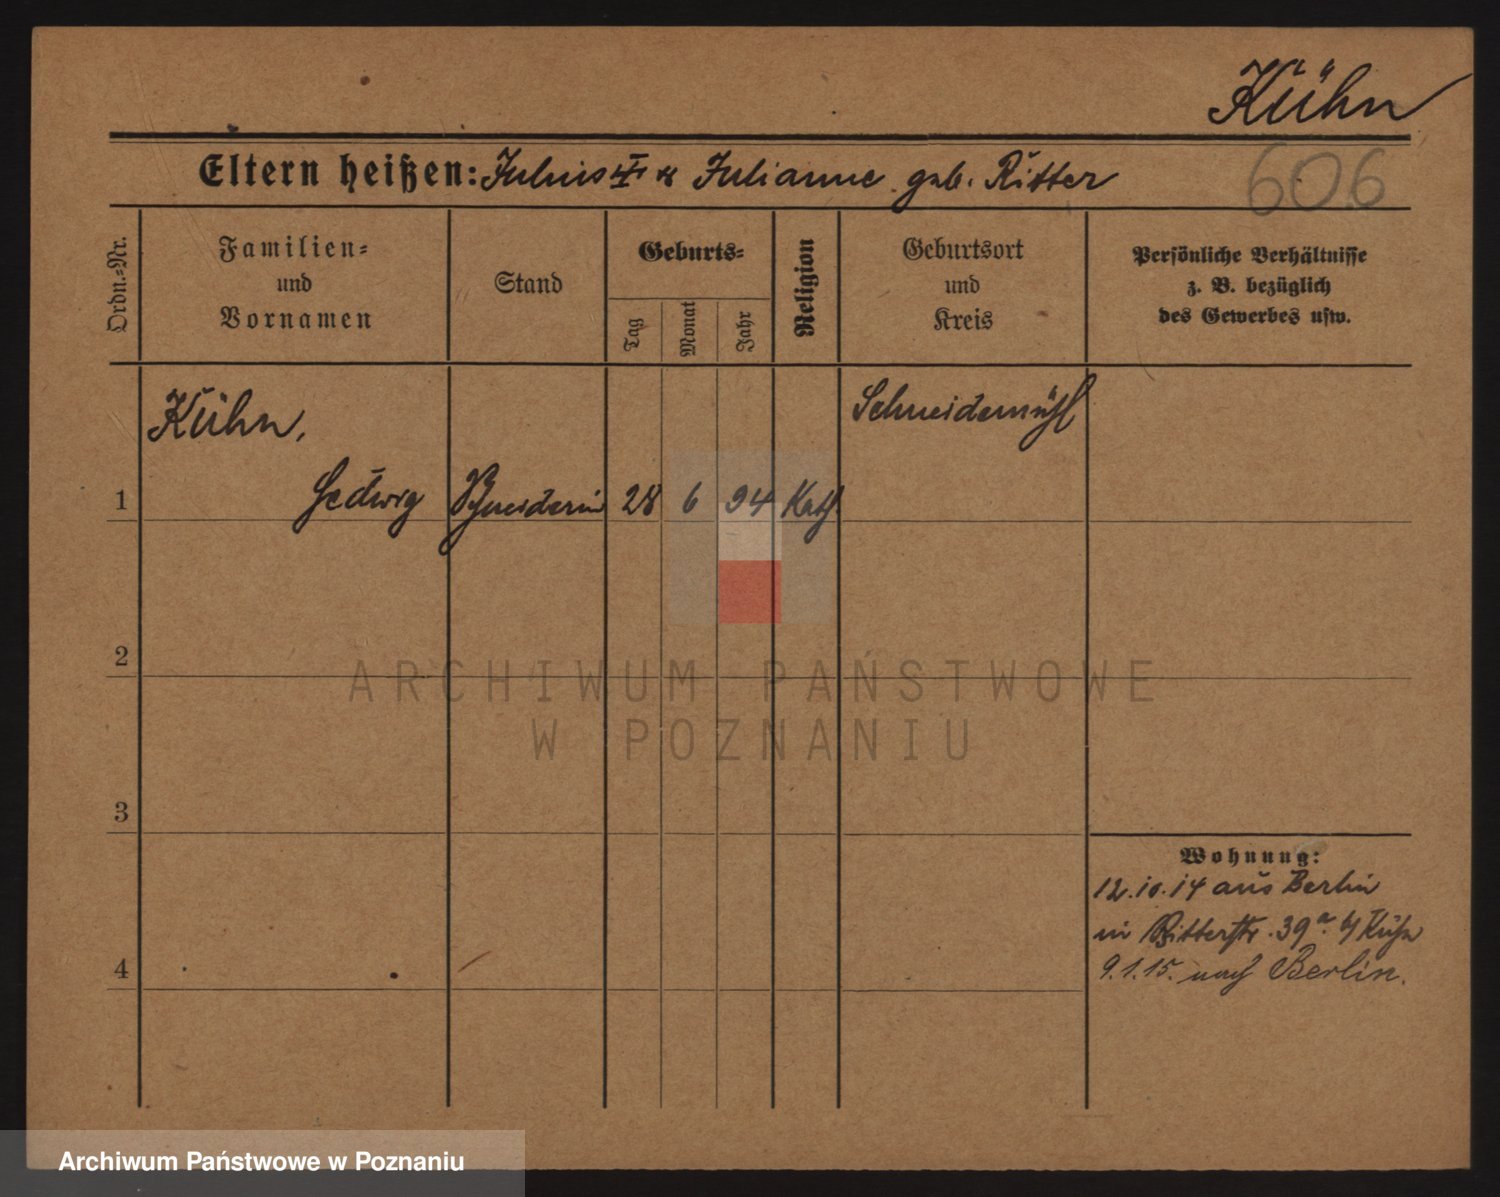 Kühn
Eltern heißen: Julius u Julianne geb. Ritter
606
Ordn.-Nr.
Familien-
und
Vornamen
Stand
Geburts-
Tag
Monat
Jahr
Religion
Geburtsort
und
Kreis
Persönliche Verhältnisse
z. B. bezüglich
des Gewerbes usw.
Kühn,
Schneidemühl
1 Hedwig Schneiderin 28 6 94 Kath
2
ARCHIWUM PAŃSTWOWE
W POZNANIU
3
Wohnung:
12.10.14 aus Berlin
in Ritterstr. 39a. b/ Kühn
4
9.1.15. nach Berlin.
Archiwum Państwowe w Poznaniu